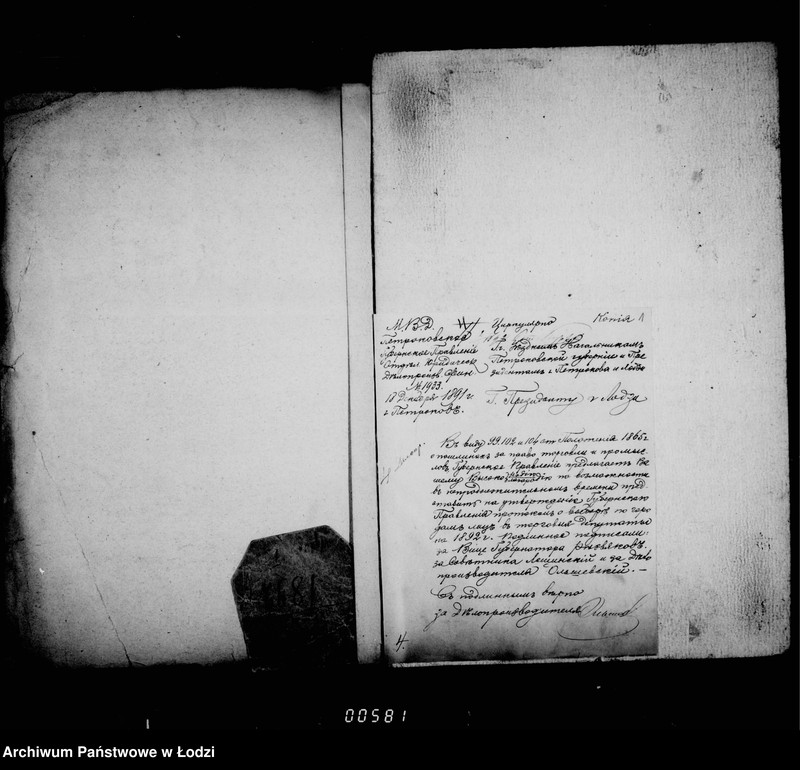 Копія
М. В. Д.
Петроковское
Губернское Правленіе
Отдѣл. Юридическ.
Дѣлопроизв.
№ 1933.
18 Декабря 1891 г.
г. Петроковъ.
Циркулярно
Гг. Уѣзднымъ Начальникамъ
Петроковской губерніи и Пре
зидентамъ г. Петрокова и Лодзи
Г. Президенту г. Лодзи
Въ виду 99, 102 и 104 ст Положенія 1865 г.
о пошлинахъ за право торговли и промыс
ловъ Губернское Правленіе предлагаетъ Ва
шему Высоко по возможности
въ непродолжительномъ времени пред
ставить на утвержденіе Губернскаго
Правленія протоколъ о выборѣ по горо
дамъ лицъ въ торговыя депутаты
на 1892 г. Подлинное подписали:
за Вице Губернатора
за Совѣтника Лешинскій и за Дѣло
производителя Ольшевскій. —
Съ подлиннымъ вѣрно
за Дѣлопроизводителя
4.
00581
Archiwum Państwowe w Łodzi